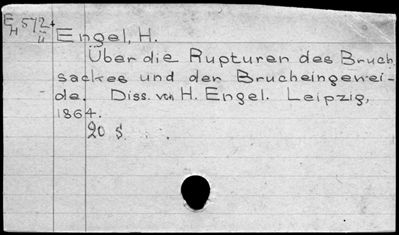 Engel, H.
Über die Rupturen des Bruch
sackes und der Brucheingewei-
de. Diss. von H. Engel. Leipzig,
1864.
20 S.